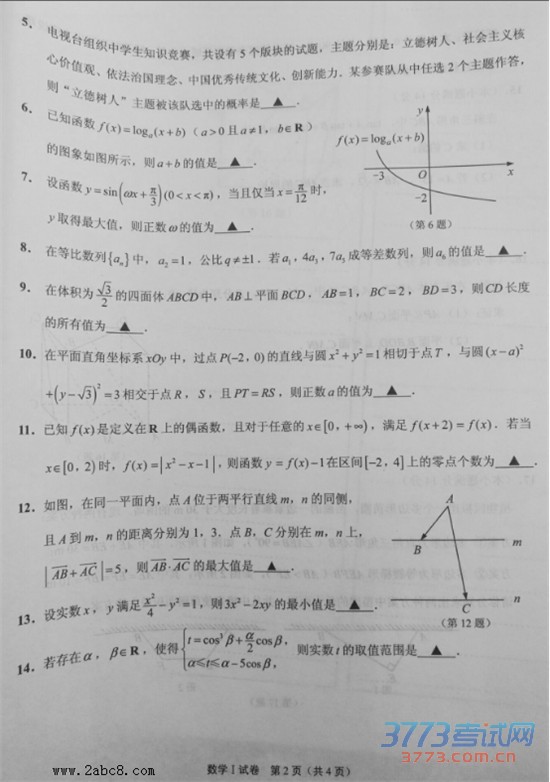 5. 电视台组织中学生知识竞赛，共设有5个版块的试题，主题分别是：立德树人、社会主义核
心价值观、依法治国理念、中国优秀传统文化、创新能力．某参赛队从中任选2个主题作答，
则“立德树人”主题被该队选中的概率是 ▲ ．
6. 已知函数 f(x)=logₐ(x+b)（a>0且a≠1，b∈R）
的图象如图所示，则a+b的值是 ▲ ．
y
f(x)=logₐ(x+b)
-3 O x
-2
（第6题）
7. 设函数 y=sin(ωx+π/3)(0<x<π)，当且仅当 x=π/12 时，
y取得最大值，则正数ω的值为 ▲ ．
8. 在等比数列{aₙ}中，a₂=1，公比q≠±1．若a₁，4a₃，7a₅成等差数列，则a₆的值是 ▲ ．
9. 在体积为 √3/2 的四面体ABCD中，AB⊥平面BCD，AB=1，BC=2，BD=3，则CD长度
的所有值为 ▲ ．
10. 在平面直角坐标系xOy中，过点P(-2，0)的直线与圆x²+y²=1相切于点T，与圆(x-a)²
+(y-√3)²=3相交于点R，S，且PT=RS，则正数a的值为 ▲ ．
11. 已知f(x)是定义在R上的偶函数，且对于任意的x∈[0，+∞)，满足f(x+2)=f(x)．若当
x∈[0，2)时，f(x)=|x²-x-1|，则函数y=f(x)-1在区间[-2，4]上的零点个数为 ▲ ．
12. 如图，在同一平面内，点A位于两平行直线m，n的同侧，
且A到m，n的距离分别为1，3．点B，C分别在m，n上，
|AB+AC|=5，则AB·AC的最大值是 ▲ ．
A
B m
C n
（第12题）
13. 设实数x，y满足x²/4-y²=1，则3x²-2xy的最小值是 ▲ ．
14. 若存在α，β∈R，使得{t=cos³β+α/2cosβ，
α≤t≤α-5cosβ，
则实数t的取值范围是 ▲ ．
数学Ⅰ试卷 第2页（共4页）
www.2abc8.com
3773考试网
3773.com.cn